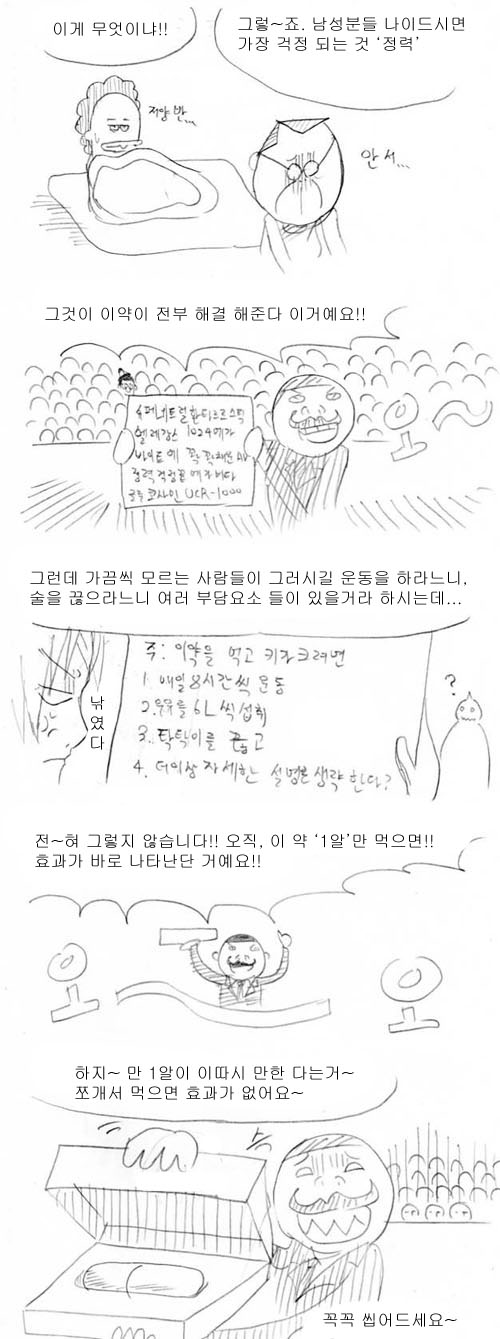 이게 무엇이냐!!
그렇~죠. 남성분들 나이드시면
가장 걱정 되는 것 '정력'
저양반...
안 서...
그것이 이약이 전부 해결 해준다 이거예요!!
1024메가
바이트에 꽉 꽉채운 AV
정력걱정끝
코사인 UCR-1000
오~
그런데 가끔씩 모르는 사람들이 그러시길 운동을 하라느니,
술을 끊으라느니 여러 부담요소 들이 있을거라 하시는데...
낚였다
주: 이약을 먹고 키가크려면
1. 매일 8시간씩 운동
2. 우유를 6L 씩 섭취
3. 탁탁이를 끊고
4. 더이상 자세한 설명은 생략한다?
?
전~혀 그렇지 않습니다!! 오직, 이 약 '1알'만 먹으면!!
효과가 바로 나타난단 거예요!!
오
오
하지~ 만 1알이 이따시 만한 다는거~
쪼개서 먹으면 효과가 없어요~
꼭꼭 씹어드세요~